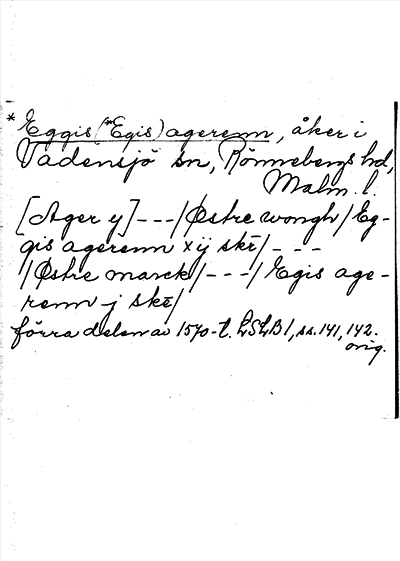 * Eggis (*Egis) agerenn, åker i
Vadensjö sn, Rönnebergs hd,
Malm. l.
[Ager y] --- / Østre wongh / Eg-
gis agerenn xij ske / - - -
/ Østre marck / --- / Egis age-
renn j ske /
förra delen av 1570-t. LSLB1, ss. 141, 142.
orig.